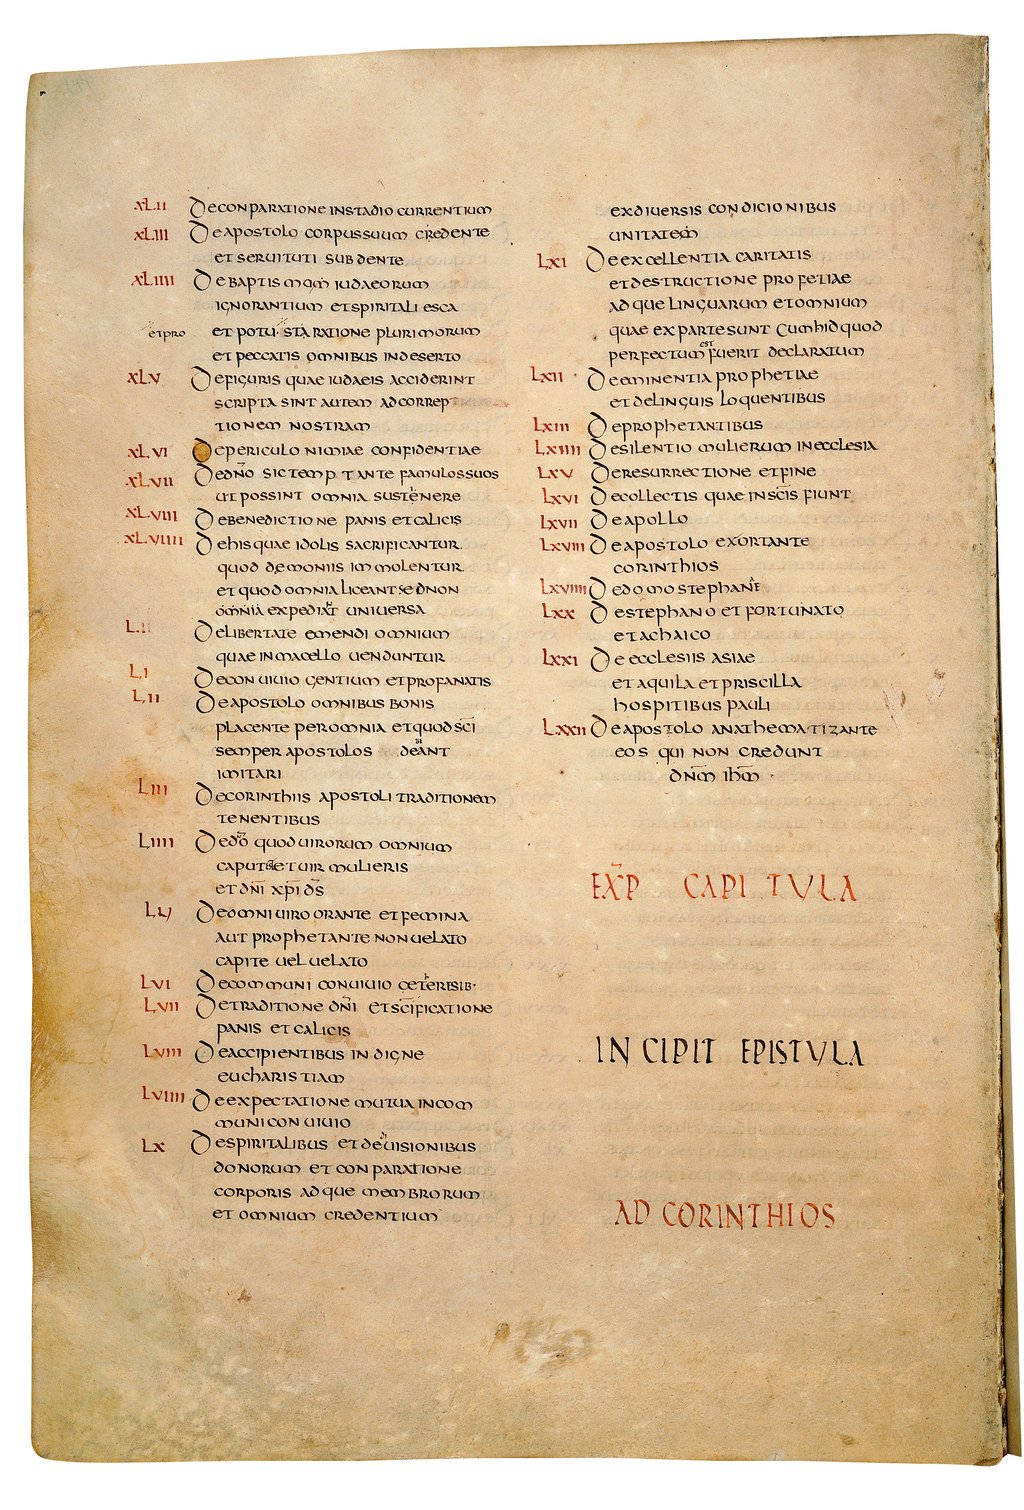 XLII De conparatione in stadio currentium
XLIII De apostolo corpus suum credente
et seruituti subdente
XLIIII De baptismo iudaeorum
ignorantium et spiritali esca
et pro et potu · ratione plurimorum
et peccatis omnibus in deserto
XLV De figuris quae iudaeis acciderint
scripta sint autem ad correp
tionem nostram
XLVI De periculo nimiae confidentiae
XLVII De dn̄o sic temptante famulos suos
ut possint omnia sustenere
XLVIII De benedictione panis et calicis
XLVIIII De his quae idolis sacrificantur
quod demoniis immolentur
et quod omnia liceant sed non
omnia expediat uniuersa
L De libertate emendi omnium
quae in macello uenduntur
LI De conuiuio gentium et profanatis
LII De apostolo omnibus bonis
placente per omnia et quod sc̄i
semper apostolos deant
imitari
LIII De corinthiis apostoli traditionem
tenentibus
LIIII De dō quod uirorum omnium
caput et uir mulieris
et dn̄i xp̄i d̄s
LV De omni uiro orante et femina
aut prophetante non uelato
capite uel uelato
LVI De communi conuiuio
LVII De traditione dn̄i et sc̄ificatione
panis et calicis
LVIII De accipientibus indigne
eucharistiam
LVIIII De expectatione mutua in com
muni conuiuio
LX De spiritalibus et de uisionibus
donorum et conparatione
corporis adque membrorum
et omnium credentium
ex diuersis condicionibus
unitatem
LXI De excellentia caritatis
et destructione profetiae
adque linguarum et omnium
quae ex parte sunt cum hid quod
perfectum est fuerit declaratum
LXII De eminentia prophetiae
et de linguis loquentibus
LXIII De prophetantibus
LXIIII De silentio mulierum in ecclesia
LXV De resurrectione et fine
LXVI De collectis quae in sc̄is fiunt
LXVII De apollo
LXVIII De apostolo exortante
corinthios
LXVIIII De domo stephan
LXX De stephano et fortunato
et achaico
LXXI De ecclesiis asiae
et aquila et priscilla
hospitibus pauli
LXXII De apostolo anathematizante
eos qui non credunt
dn̄m ih̄m ·
EXP̄ CAPITULA
INCIPIT EPISTULA
AD CORINTHIOS